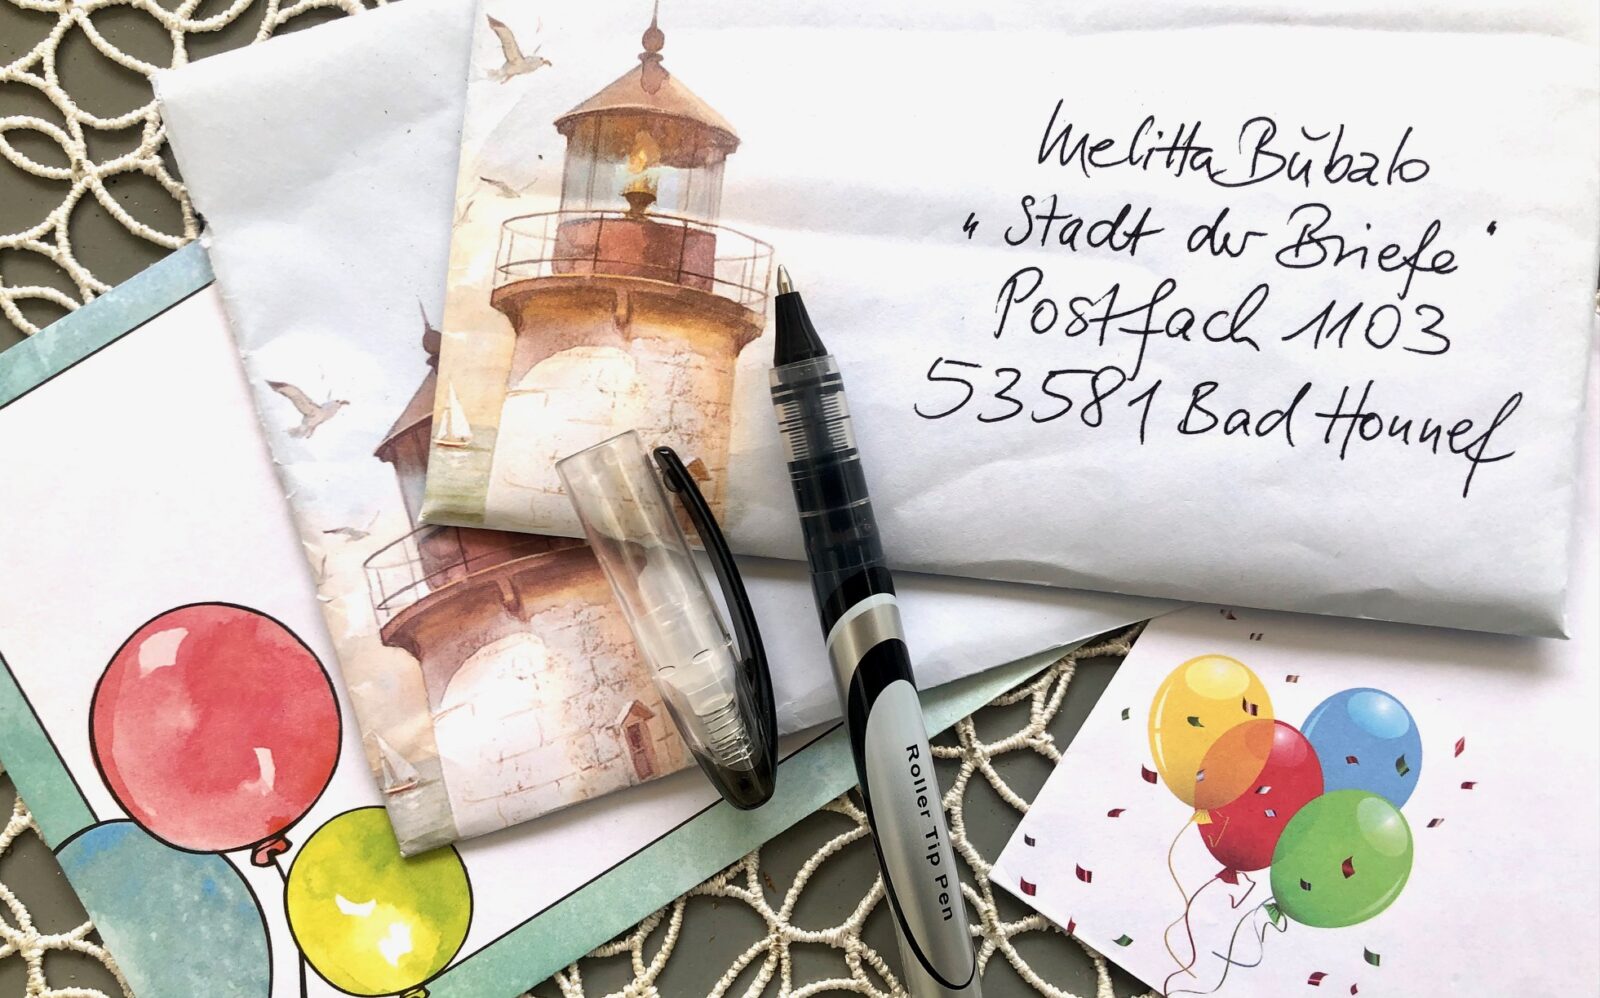 Melitta Bŭbalo
"Stadt der Briefe"
Postfach 1103
53581 Bad Honnef
Roller Tip Pen